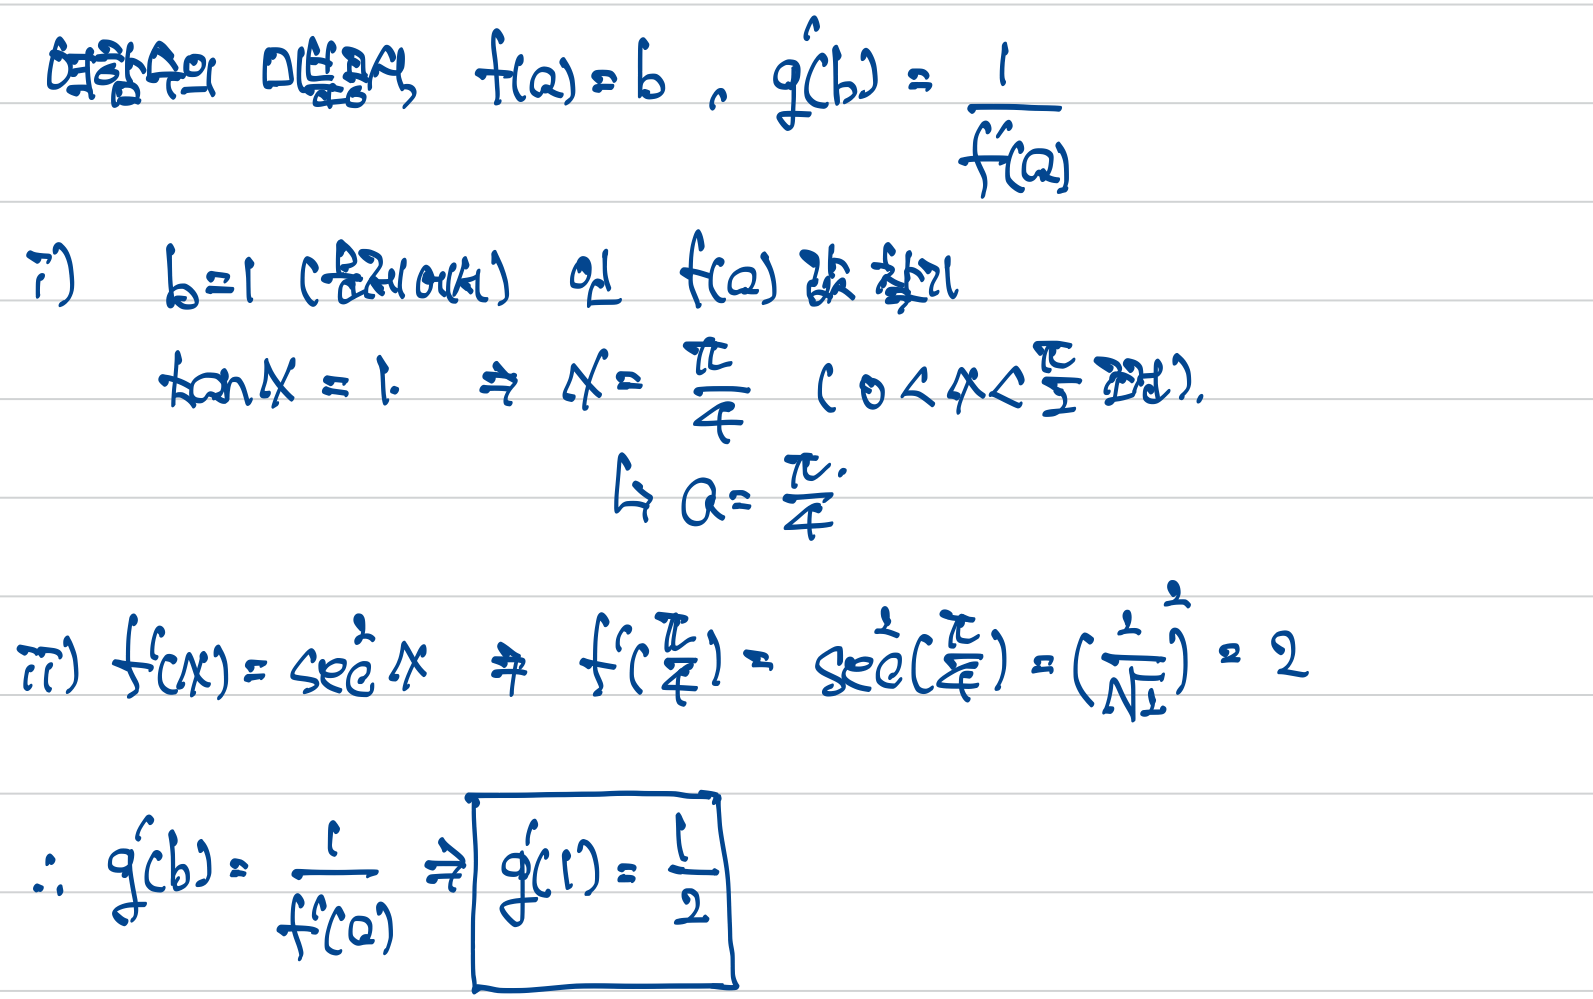 역함수의 미분법, f(a)=b , g'(b) = 1/f'(a)
i) b=1 (문제에서) 인 f(a) 값 찾기
tan x = 1. ⇒ x = π/4 (0<x<π/2 이므로).
↳ a = π/4.
ii) f'(x) = sec²x ⇒ f'(π/4) = sec²(π/4) = (2/√2)² = 2
∴ g'(b) = 1/f'(a) ⇒ g'(1) = 1/2